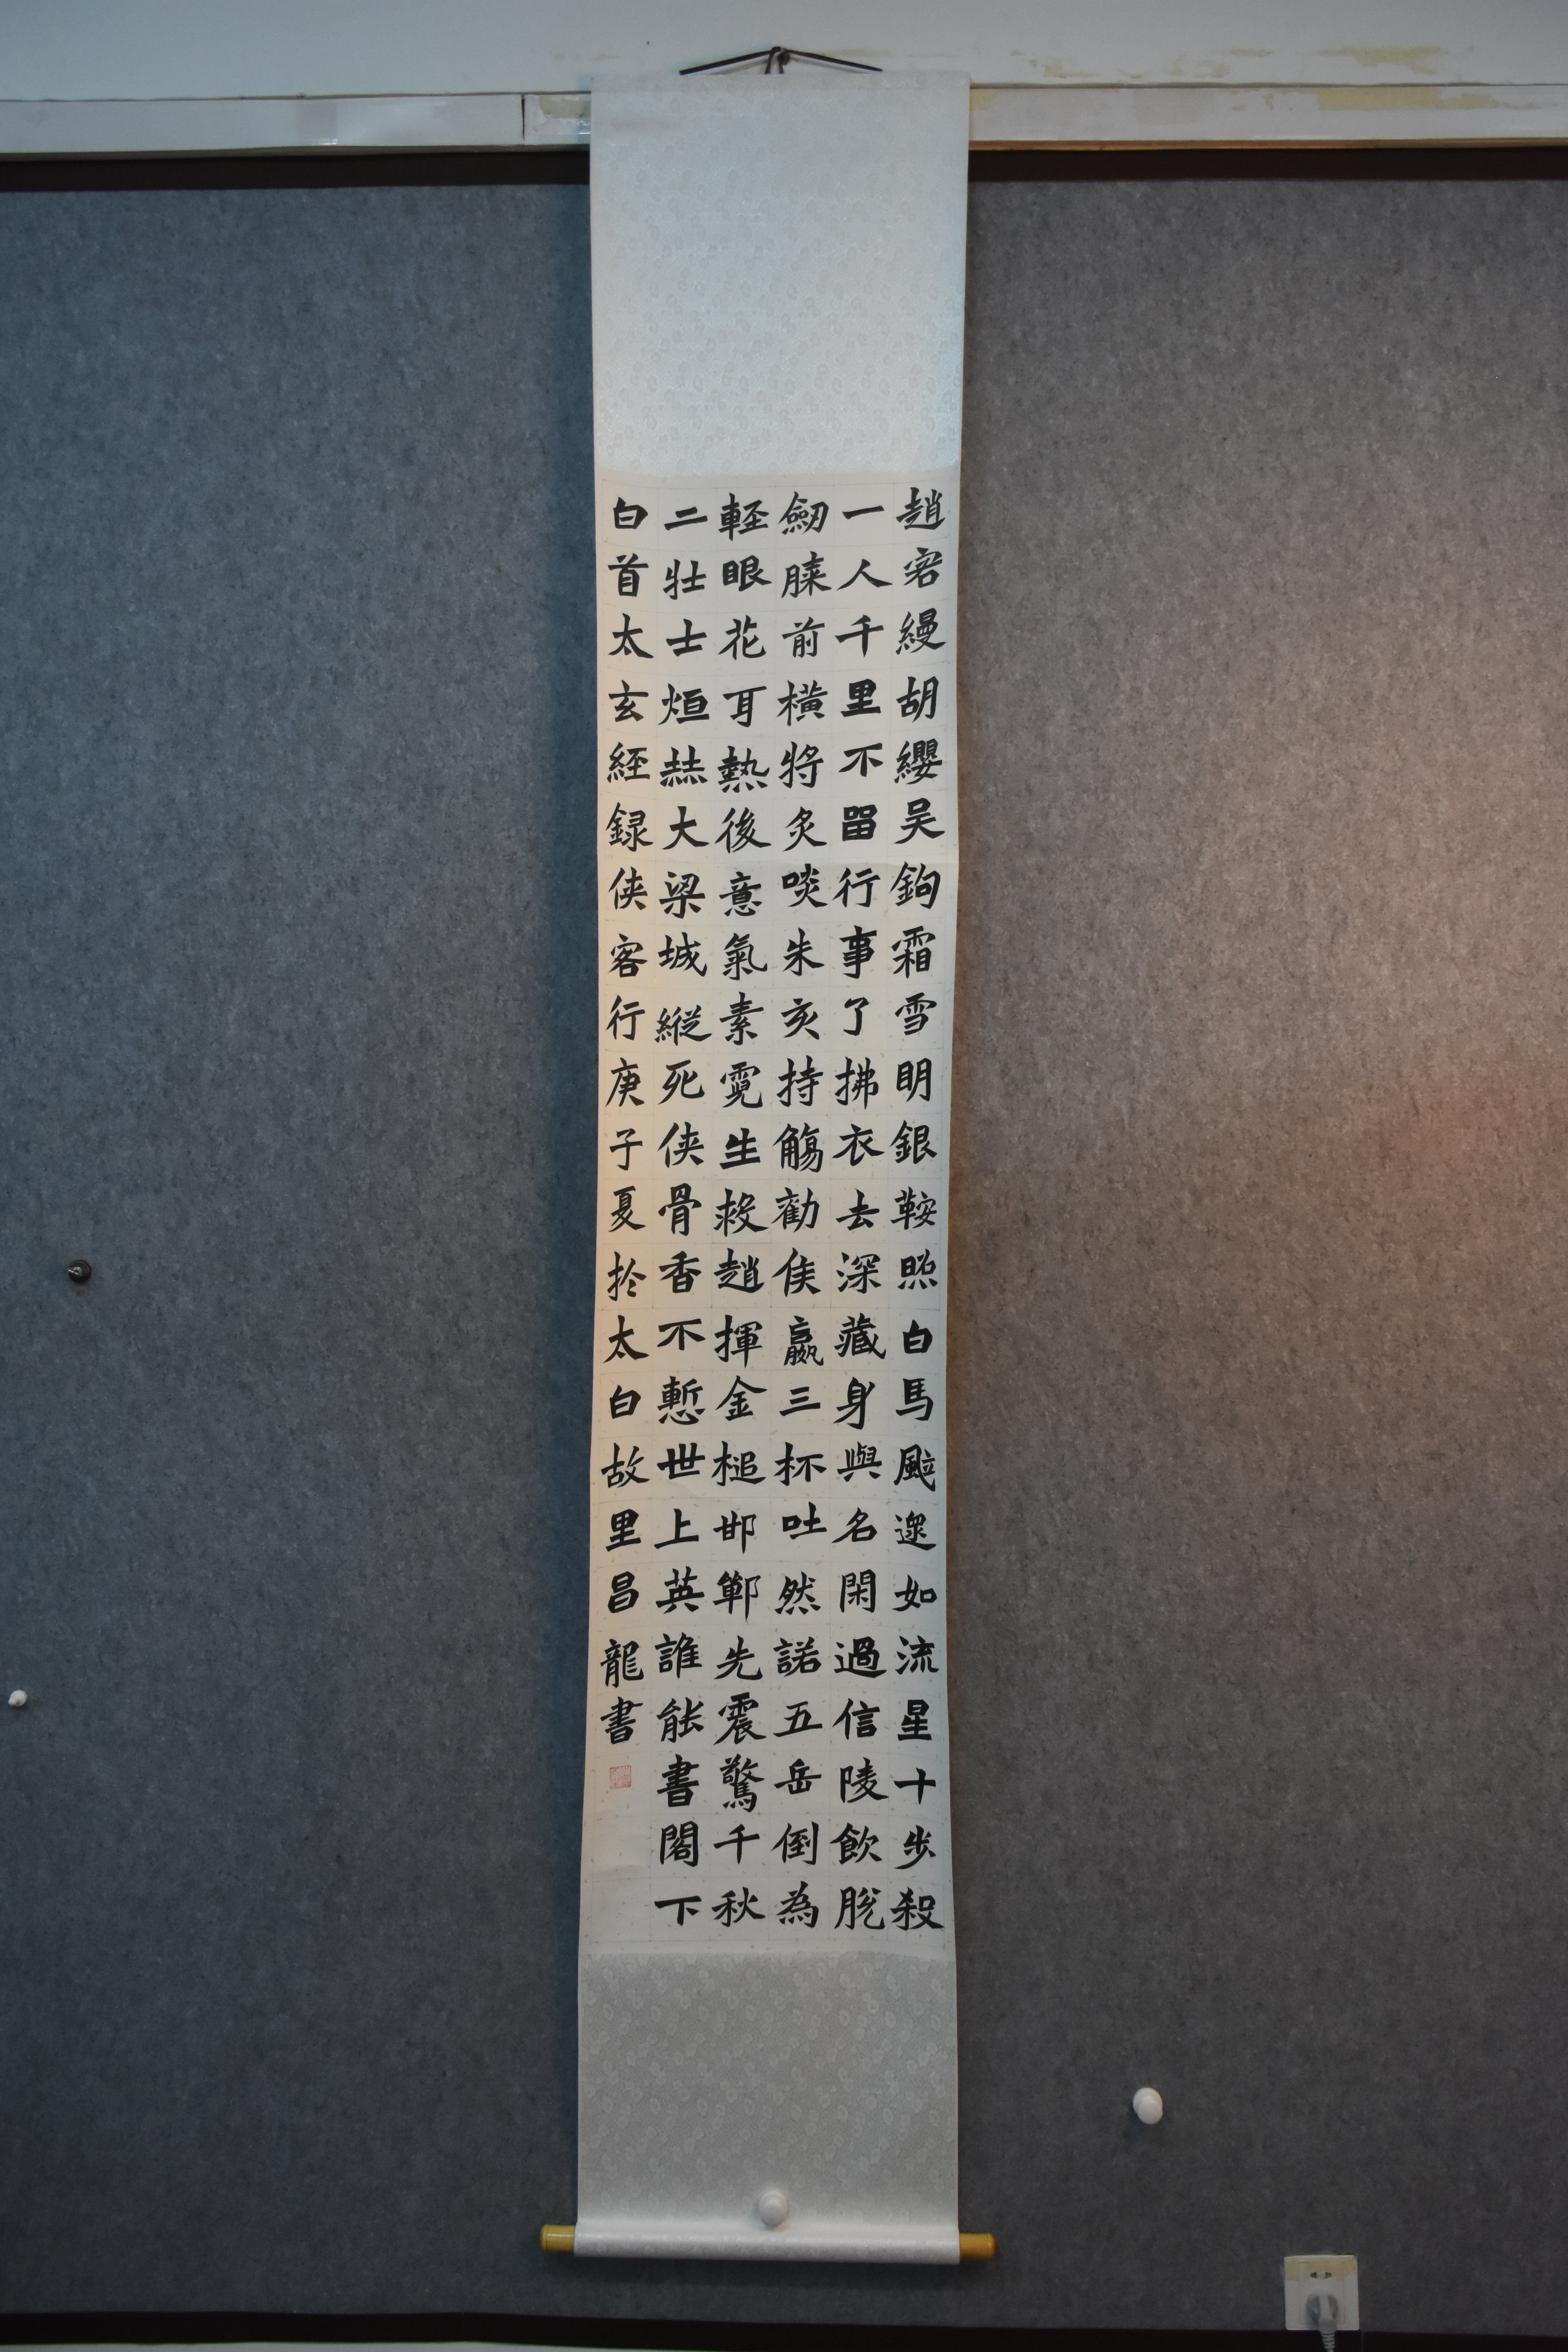 趙客縵胡纓吴鉤霜雪明銀鞍照白馬颯遝如流星十步殺
一人千里不留行事了拂衣去深藏身與名閑過信陵飲脫
劒膝前横將炙啖朱亥持觴勸侯嬴三杯吐然諾五岳倒為
輕眼花耳熱後意氣素霓生救趙揮金槌邯鄲先震驚千秋
二壮士烜赫大梁城縱死俠骨香不慙世上英誰能書閣下
白首太玄經録俠客行庚子夏於太白故里昌龍書